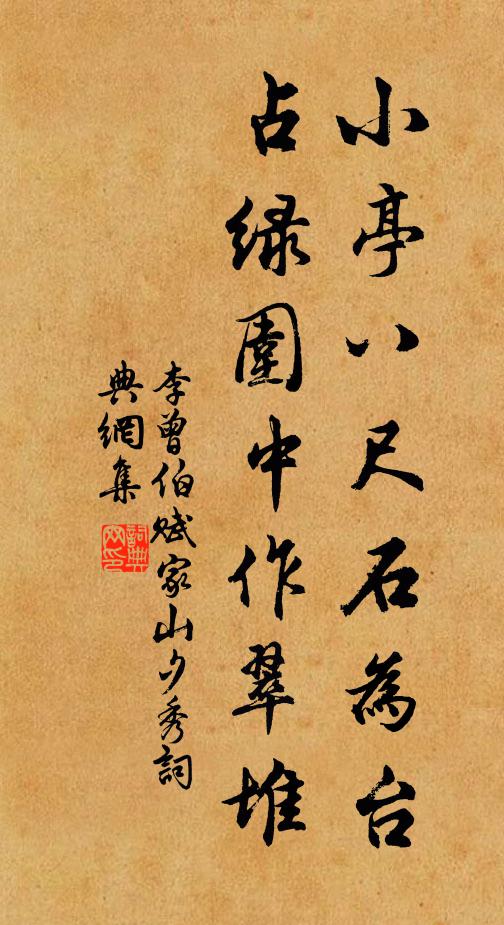 小亭八尺石為台
占绿圍中作翠堆
李曾伯赋家山夕秀詞
典網集
詞典
网印